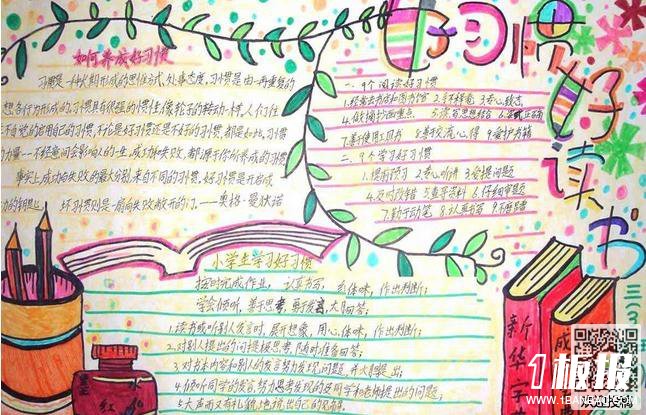 好习惯好读书
如何养成好习惯
习惯是一种长期形成的思维方式、处事态度,习惯是由一再重复的
想和行为形成的,习惯具有很强的惯性,像轮子的转动一样,人们往
不自觉的启用自己的习惯,不论是好习惯还是不好的习惯,都是如此,习惯
力量--不经意间会影响人的一生,成功和失败,都源于你所养成的习惯
事实上,成功与失败的最大分别,来自不同的习惯,好习惯是开启成
功的钥匙,坏习惯则是一扇向失败敞开的门,——奥格·曼狄诺
一、9个阅读好习惯
1.经常去书店和图书馆 2.专心致志
4.做好摘抄画重点 5.读书思想结合 6.正确
7.善于使用工具书 8.善于交流心得 9.爱护书籍
二、9个学习好习惯
1.提前预习 2.专心听讲 3.爱提问题
4.及时改错 5.查寻资料 6.仔细审题
7.勤于动笔 8.认真书写 9.不磨蹭
小学生学习好习惯
按时完成作业,认真书写,作出判断;
学会倾听,善于思考,勇于发言,大胆回答;
1.读书或听别人发言时,展开想象,用心体味,作出判断;
2.对别人提出的问题积极思考,随时准备回答;
3.对书本内容和别人的发言努力发现问题,并大胆提出;
4.倾听同学的发言,努力思考发现的运用学和老师提出的问题;
5.大声而又有礼貌地说出自己的见解。
新华字
成
三(3
红
水
1板报
www.1BANBAO.com